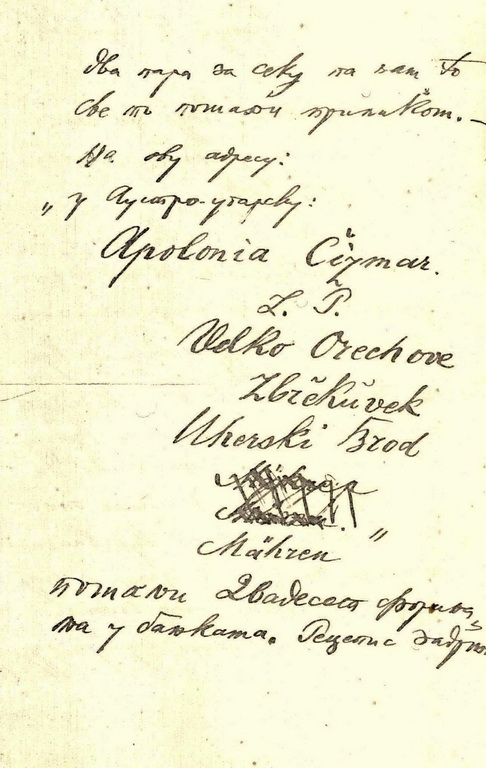 два пара за секу па вам то
све то пошаљи приликом. –
На ову адресу:
„ у Аустро-угарску:
Apolonia Čižmar.
Z. P.
Velko Orechove
Zbrčkůvek
Uherski Brod
Mähren "
пошаљи двадесет форина
та у банката. Рецепис задржи